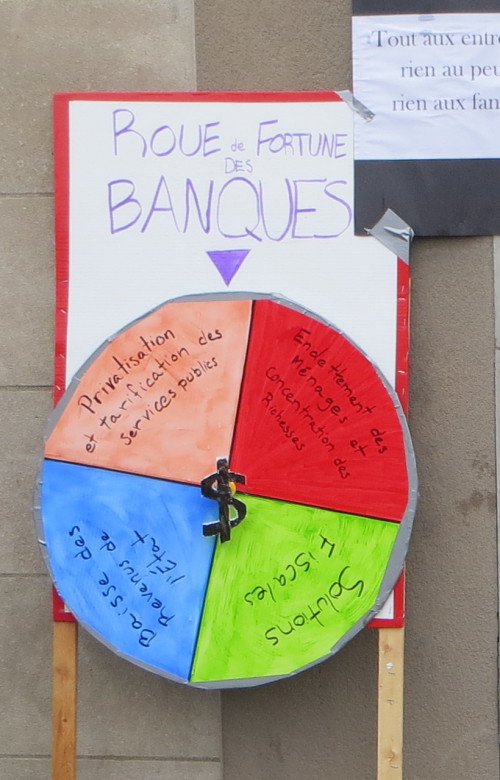 Roue de Fortune
des
Banques
Privatisation
et tarification des
services publics
Endettement des
ménages et
concentration des
Richesses
Solutions
Fiscales
Baisse des
Revenus de
l'État
$
Tout aux entre
rien au peu
rien aux fam